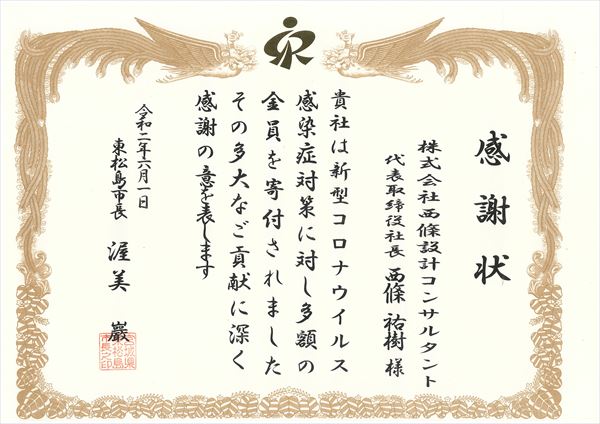 感謝状
株式会社西條設計コンサルタント
代表取締役社長 西條祐樹様
貴社は新型コロナウイルス
感染症対策に対し多額の
金員を寄付されました
その多大なご貢献に深く
感謝の意を表します
令和二年六月一日
東松島市長 渥美巖